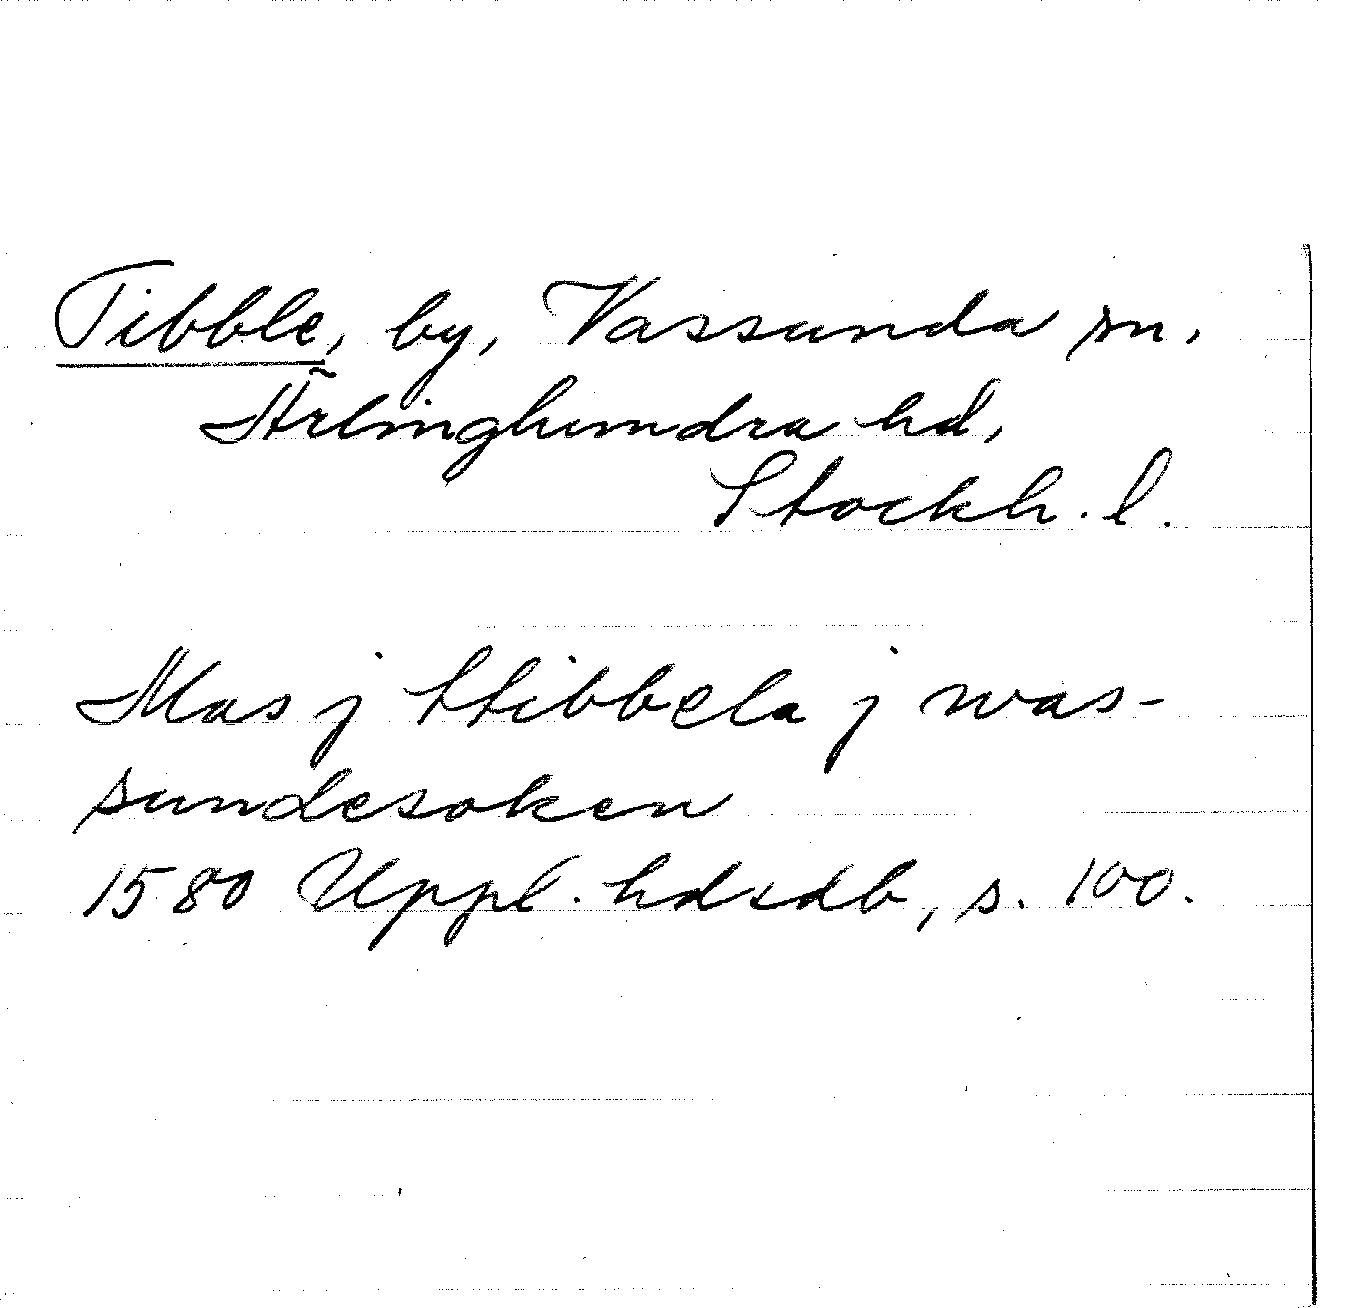 Tibble, by, Vassunda sn,
Ärlinghundra hd,
Stockh. l.
Mas j Stibbela j was-
sundesoken
1580 Uppl. hdsdb, s. 100.